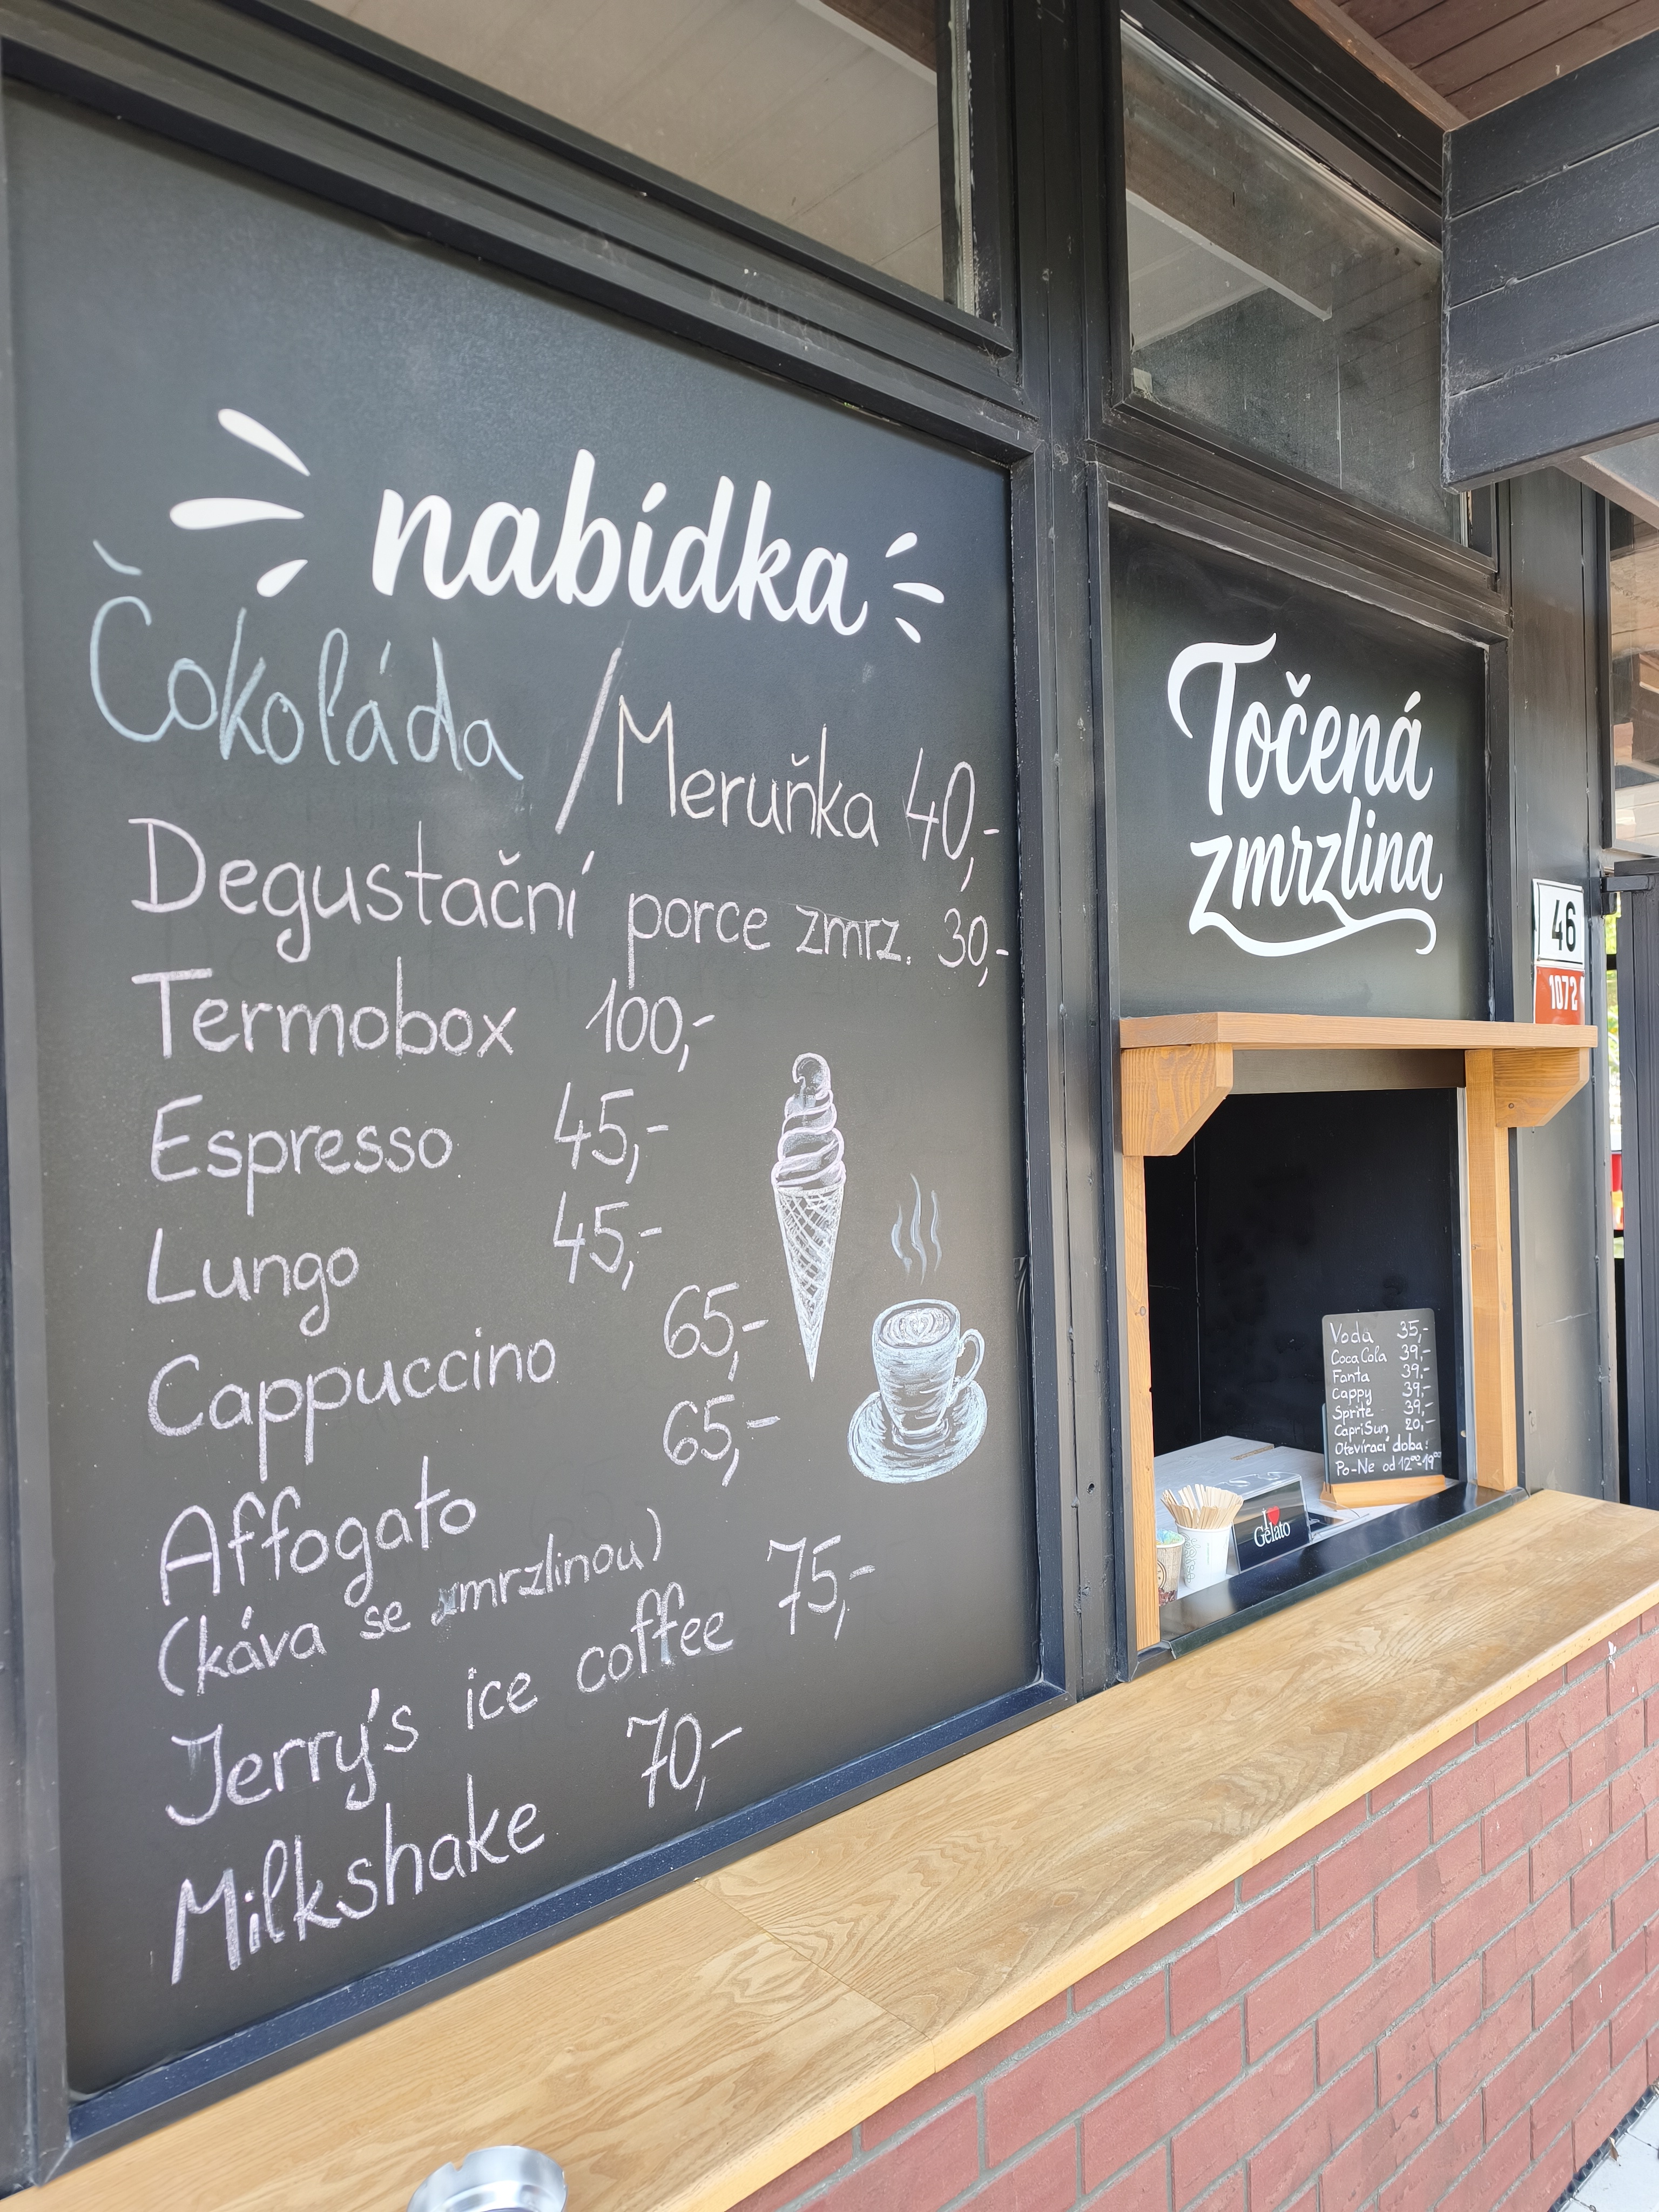 nabídka
Čokoláda / Meruňka 40,-
Degustační porce zmrz. 30,-
Termobox 100,-
Espresso 45,-
Lungo 45,-
Cappuccino 65,-
Affogato 65,-
(káva se zmrzlinou)
Jerry's ice coffee 75,-
Milkshake 70,-
Točená
zmrzlina
46
1072
Voda 35,-
Coca Cola 39,-
Fanta 39,-
Cappy 39,-
Sprite 39,-
CapriSun 20,-
Otevírací doba:
Po-Ne od 12⁰⁰-19⁰⁰
I
Gelato